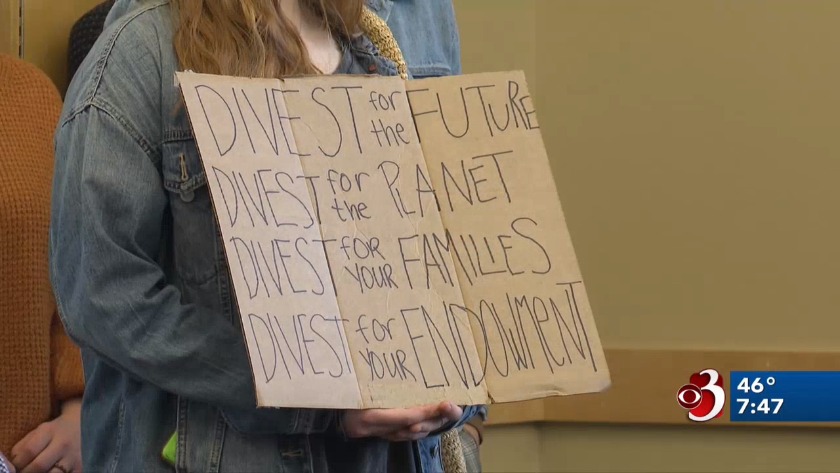 DIVEST for the FUTURE
DIVEST for the PLANET
DIVEST FOR YOUR FAMILIES
DIVEST for YOUR ENDOWMENT
3 46°
7:47